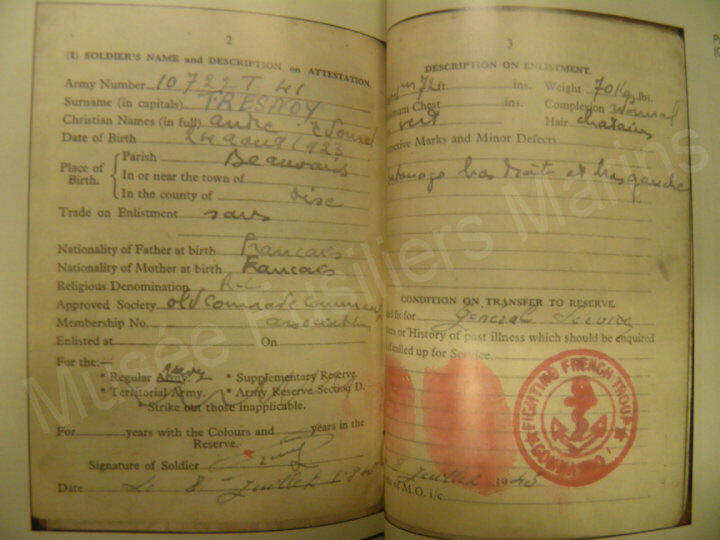 2
(1) SOLDIER'S NAME and DESCRIPTION on ATTESTATION.
Army Number 10722T 41
Surname (in capitals) TRESNOY
Christian Names (in full) André
Date of Birth 24 août 1923
Place of Birth.
Parish Beauvais
In or near the town of
In the county of oise
Trade on Enlistment sans
Nationality of Father at birth Francais
Nationality of Mother at birth Francais
Religious Denomination R-C
Approved Society old Comrade Command
Membership No. association
Enlisted at On
For the:—
Navy
* Regular Army. * Supplementary Reserve.
* Territorial Army. * Army Reserve Section D.
* Strike out those inapplicable.
For years with the Colours and years in the
Reserve.
Signature of Soldier
Date Le 8 Juillet
3
DESCRIPTION ON ENLISTMENT.
72 ft. ins. Weight 70 Kgs lbs.
Chest ins. Complexion normal
vert Hair chatains
Marks and Minor Defects
bras droit et bras gauche
CONDITION ON TRANSFER TO RESERVE.
fit for general Service
or History of past illness which should be enquired
called up for Service
FIGHTING FRENCH TROUP
COMMANDO
Juillet 1945
of M.O. i/c.
Musée Fusiliers Marins